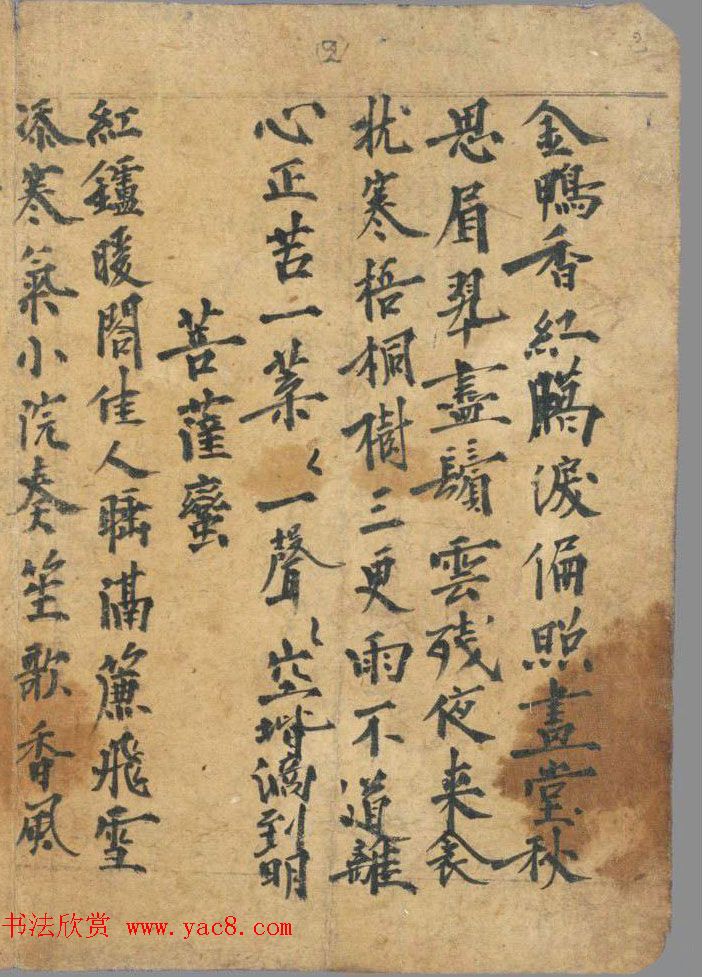 2
(2)
金鴨香紅臈淚偏照畫堂秋
思眉翠盡鬢雲残夜来衾
枕寒梧桐樹三更雨不道離
心正苦一葉〻一聲〻空堦滴到明
菩薩蠻
紅鑪暖閤佳人睡隔簾飛雪
添寒氣小院奏笙歌香風
书法欣赏 www.yac8.com